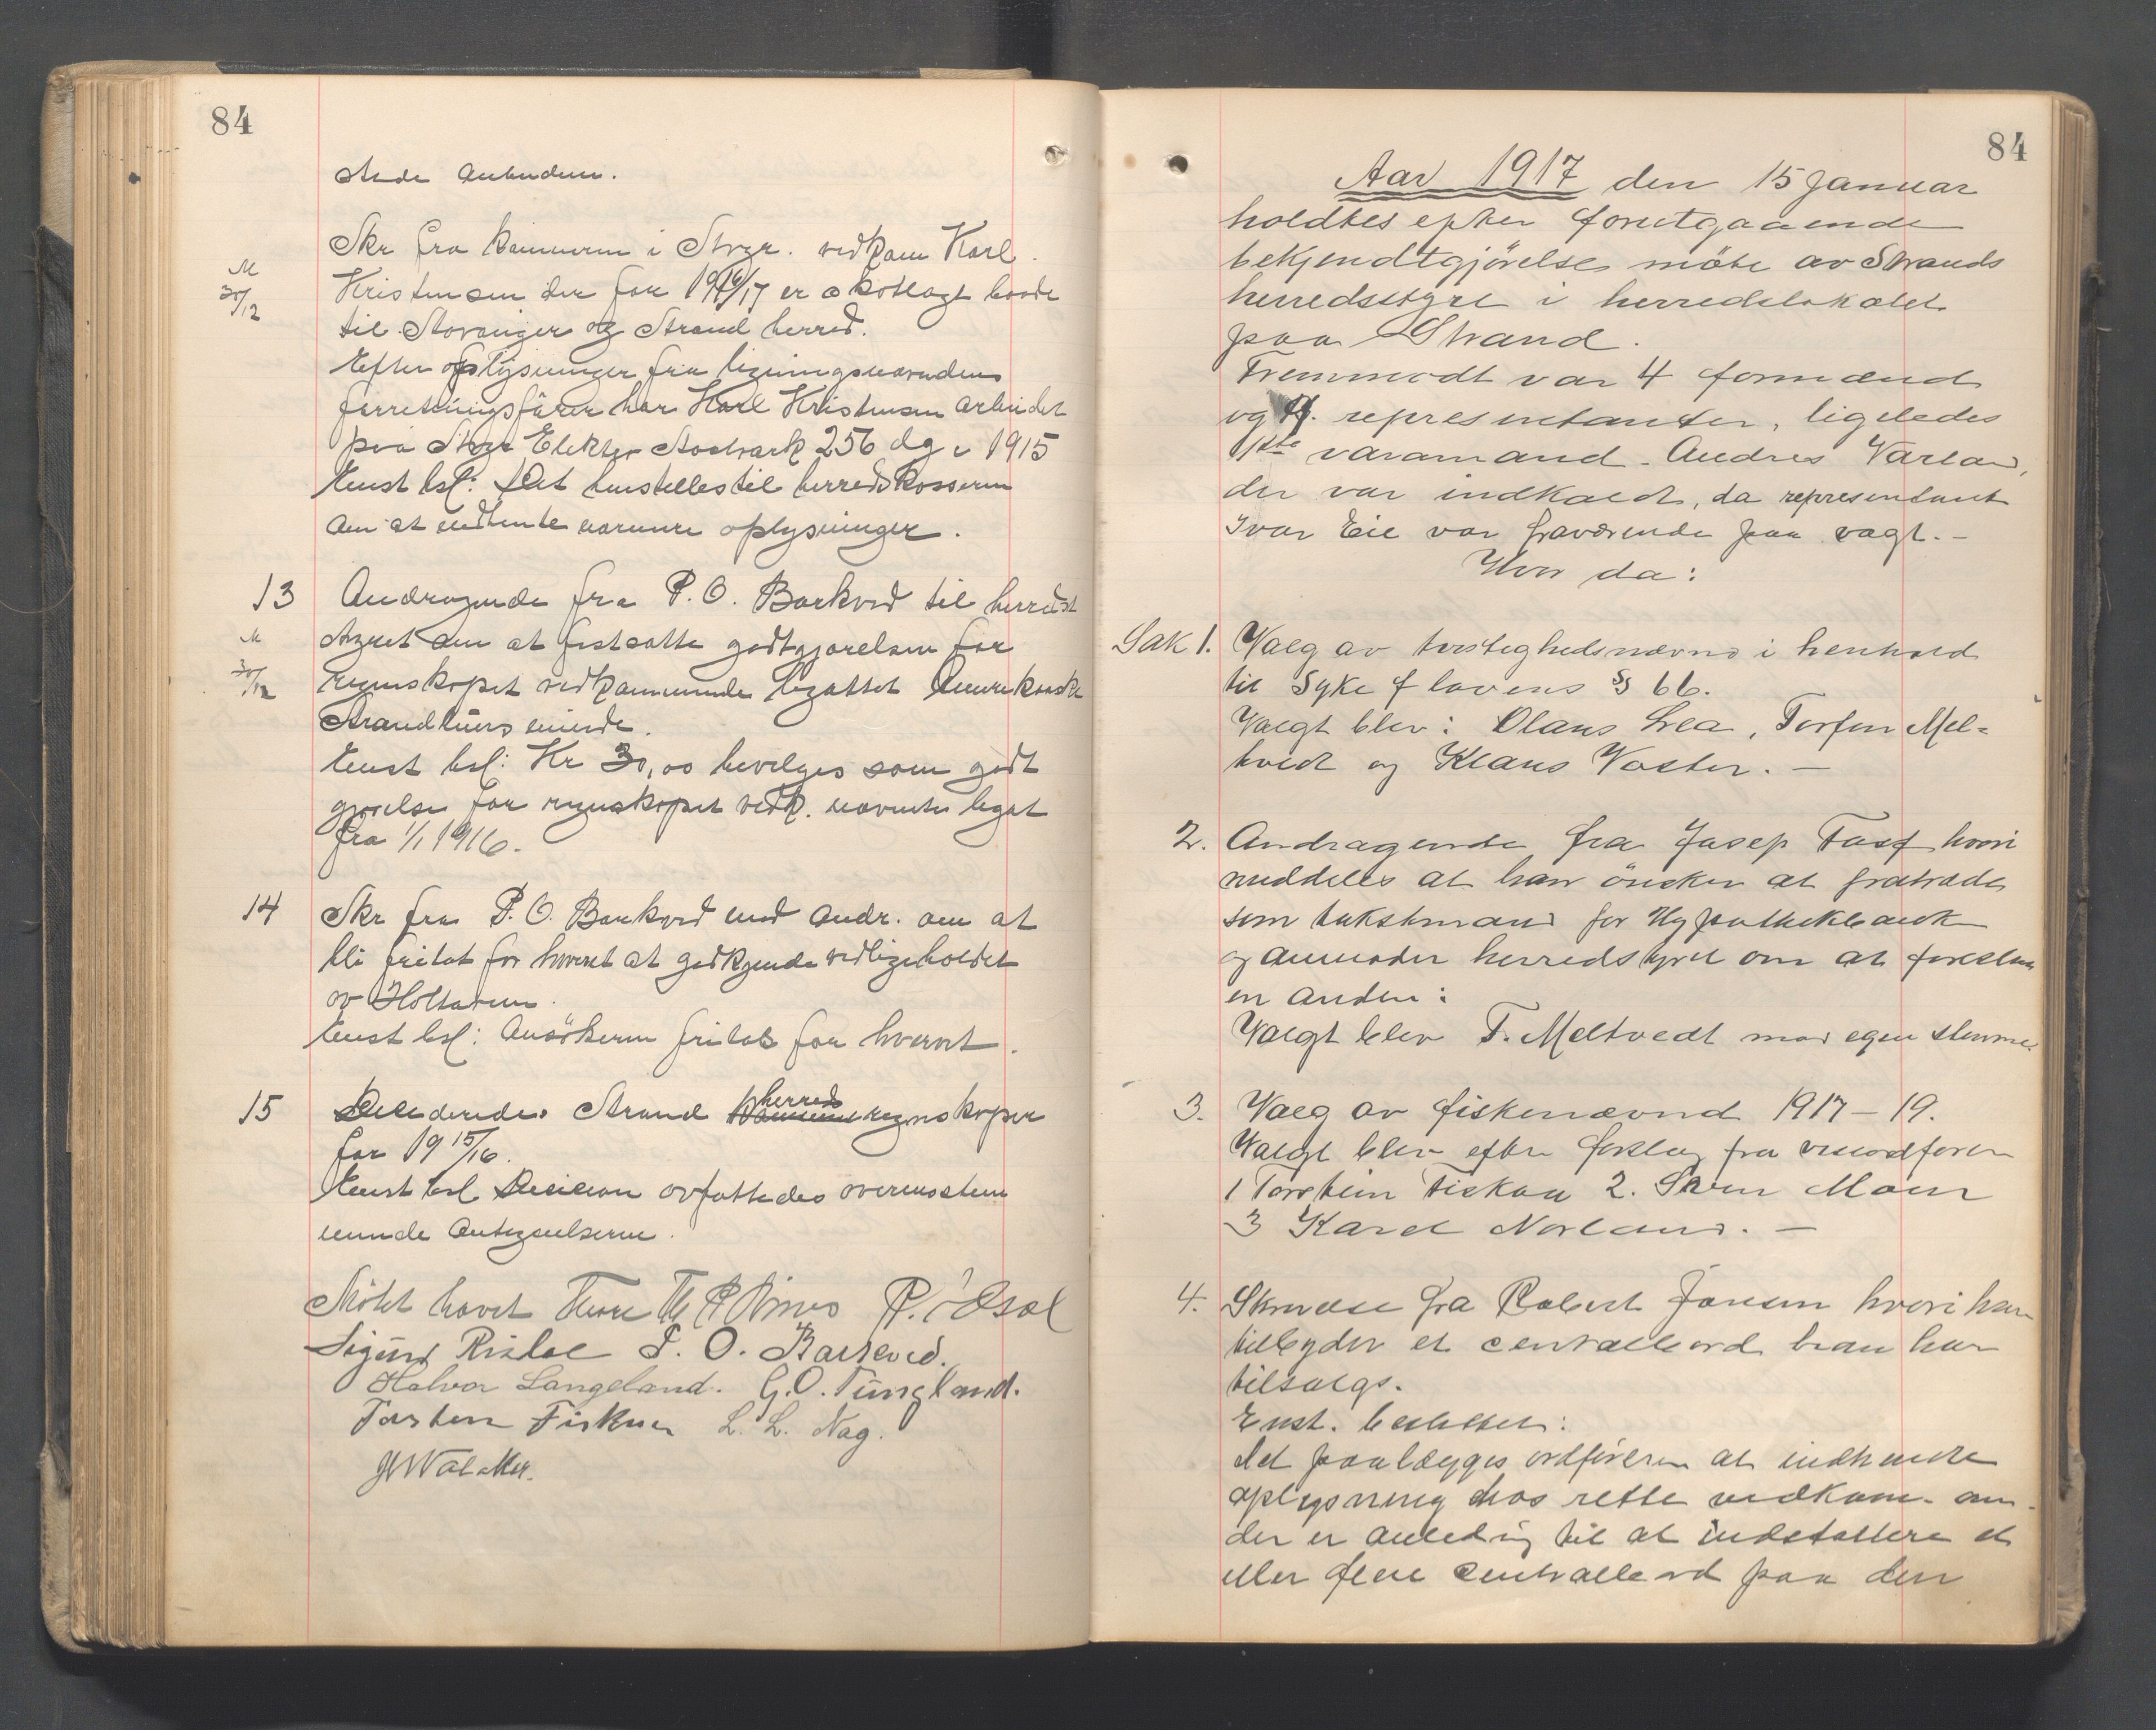 84
stede anbudene.
Skr fra kæmneren i Stvgr. vedkom Karl
M
30/12
Kristensen der for 1916/17 er skatlagt baade
til Stavanger og Strand herred.
Efter oplysninger fra ligningsnævndens
forretningsfører har Karl Kristensen arbeidet
paa Stvgr Elektr Staalverk 256 dg i 1915
Enst bsl: Det henstilles til herredskasseren
om at indhente nærmere oplysninger.
13 Andragende fra P. O. Barkved til herreds
M
30/12
styret om at fastsætte godtgjørelsen for
regnskapet vedkommende legatet Amerikanske
Strandbuers minde.
Enst bsl: Kr 30,00 bevilges som godt
gjørelse for regnskapet vedk. nævnte legat
fra 1/1 1916.
14 Skr fra P. O. Barkved med andr. om at
bli fritat for hvervet at godkjende vedligeholdet
av Holtaveien.
Enst bsl: Ansøkeren fritas for hvervet.
15 Decideredes Strand herreds regnskaper
for 1915/16.
Enst bsl Decision avfattedes overensstem
mende Antegnelserne.
Møtet hævet Tore P. Idsal
Sigurd Riskel P. O. Barkved.
Halvor Langeland. G. O. Tungland.
Torsten Fiskaa L. L. Nag.
84
Aar 1917 den 15 Januar
holdtes efter forutgaaende
bekjendtgjørelse møte av Strands
herredsstyre i herredslokalet
paa Strand.
Fremmødt var 4 formænd
og representanter, ligeledes
1ste varamand Andres Varland,
der var indkaldt, da representant
Ivar Eie var fraværende paa vagt. –
Hvor da:
Sak 1. Valg av tvistighedsnævnd i henhold
til Syke f lovens § 66.
Valgt blev: Olaus Lea, Torfin Mel=
tvedt og Klaus Vaster. –
2. Andragende fra Josep Tusf hvori
meddeles at han ønsker at fratræde
som takstmand for Hypothekbank
og anmoder herredstyret om at foreslaa
en anden:
Valgt blev T. Meltvedt mod egen stemme.
3. Valg av fiskenævnd 1917 – 19.
Valgt blev efter forslag fra viseordfører
1 Torstein Fiskaa 2. Sven Moen
3 Karel Norland. –
4. Skrivelse fra Robert Jonsen hvori han
tilbyder et centralbord han har
tilsalgs.
Enst. besluttet:
Det paalægges ordføreren at indhente
oplysning hos rette vedkom. om
der er anledning til at indstallere et
eller flere centralbord paa den